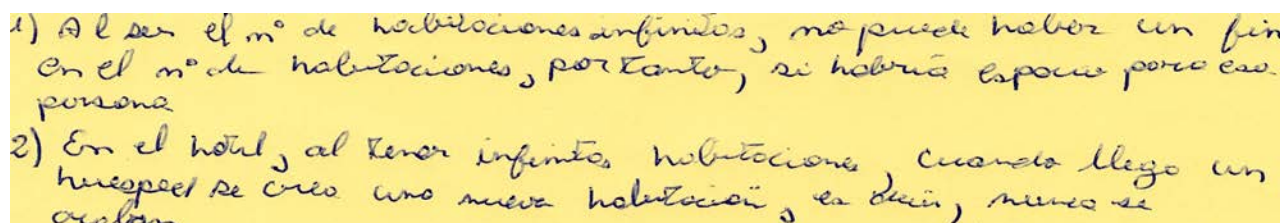 1) Al ser el nº de habitaciones infinitas, no puede haber un fin
en el nº de habitaciones, por tanto, si habría espacio para esa
persona
2) En el hotel, al tener infinitas habitaciones, cuando llega un
huesped se crea una nueva habitación, es decir, nunca se
acaban